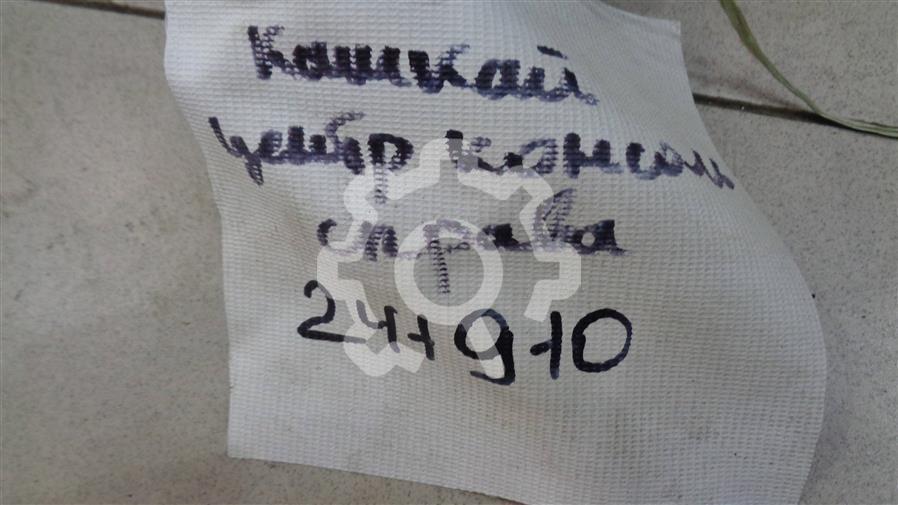 Кашкай
центр консоли
справа
24+9+0